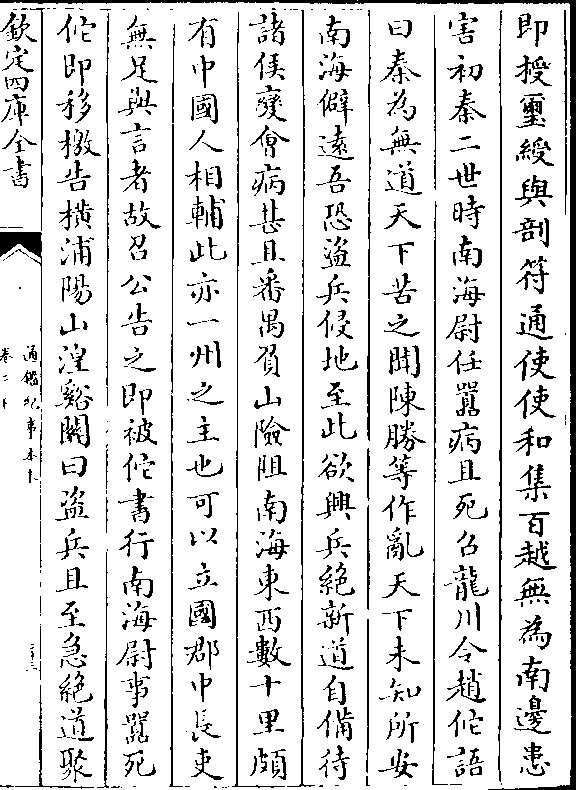 即授璽綬與剖符通使使和集百越無為南邊患
害初秦二世時南海尉任囂病且死召龍川令趙佗語
曰秦為無道天下苦之聞陳勝等作亂天下未知所安
南海僻遠吾恐盜兵侵地至此欲興兵絶新道自備待
諸侯變會病甚且番禺負山險阻南海東西數十里頗
有中國人相輔此亦一州之主也可以立國郡中長吏
無足與言者故召公告之即被佗書行南海尉事囂死
佗即移檄告横浦陽山湟谿關曰盜兵且至急絶道聚
欽定四庫全書
通鑑紀事本末
卷二下